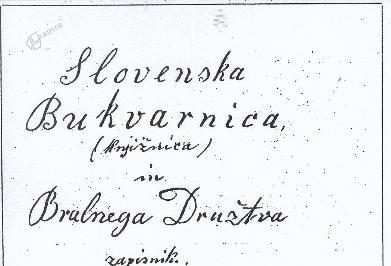 Kamra
Slovenska
Bukvarnica,
(knjižnica)
in
Bralnega Družtva
zapisnik.